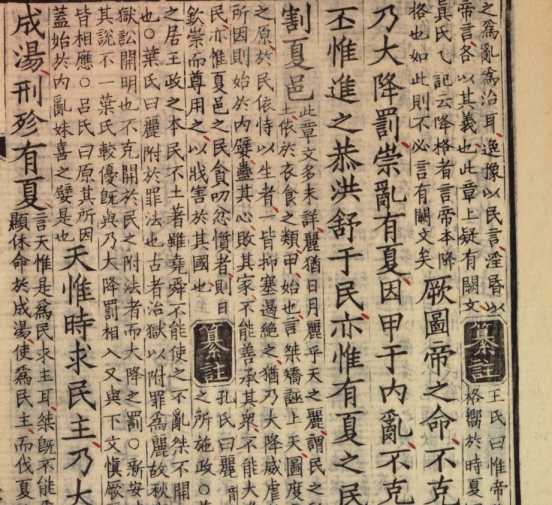 之爲亂爲治耳逸豫以民言淫昏以
帝言各以其義也此章上疑有闕文
纂註
王氏曰惟帝
格嚮於時夏
眞氏乙記云降格者言帝本降
格也如此則不必言有闕文矣
厥圖帝之命不克
乃大降罰崇亂有夏因甲于內亂不克
丕惟進之恭洪舒于民亦惟有夏之民
割夏邑
此章文多未詳麗猶日月麗乎天之麗謂民之
土依於衣食之類甲始也言桀矯誣上天圖度
之原於民依恃以生者一皆抑塞遏絶之猶乃大降威虐
所因則始於內嬖蠱其心敗其家不能善承其衆不能大
民亦惟夏邑之民貪叨忿懫者則日
欽崇而尊用之以戕害於其國也
纂註
孔氏曰麗
之所施政○
之居王政之本民不土著雖堯舜不能使之不亂桀不開
也○葉氏曰麗附於罪法也古者治獄以附罪爲麗故秋
獄訟開明也不克開於民之附法者而大降之罰○新安
其說不一葉氏較優旣與乃大降罰相入又與下文愼厥
皆相應○呂氏曰原其所因
蓋始於內亂妹喜之嬖是也
天惟時求民主乃大
成湯刑殄有夏
言天惟是爲民求主耳桀旣不能
顯休命於成湯使爲民主而伐夏